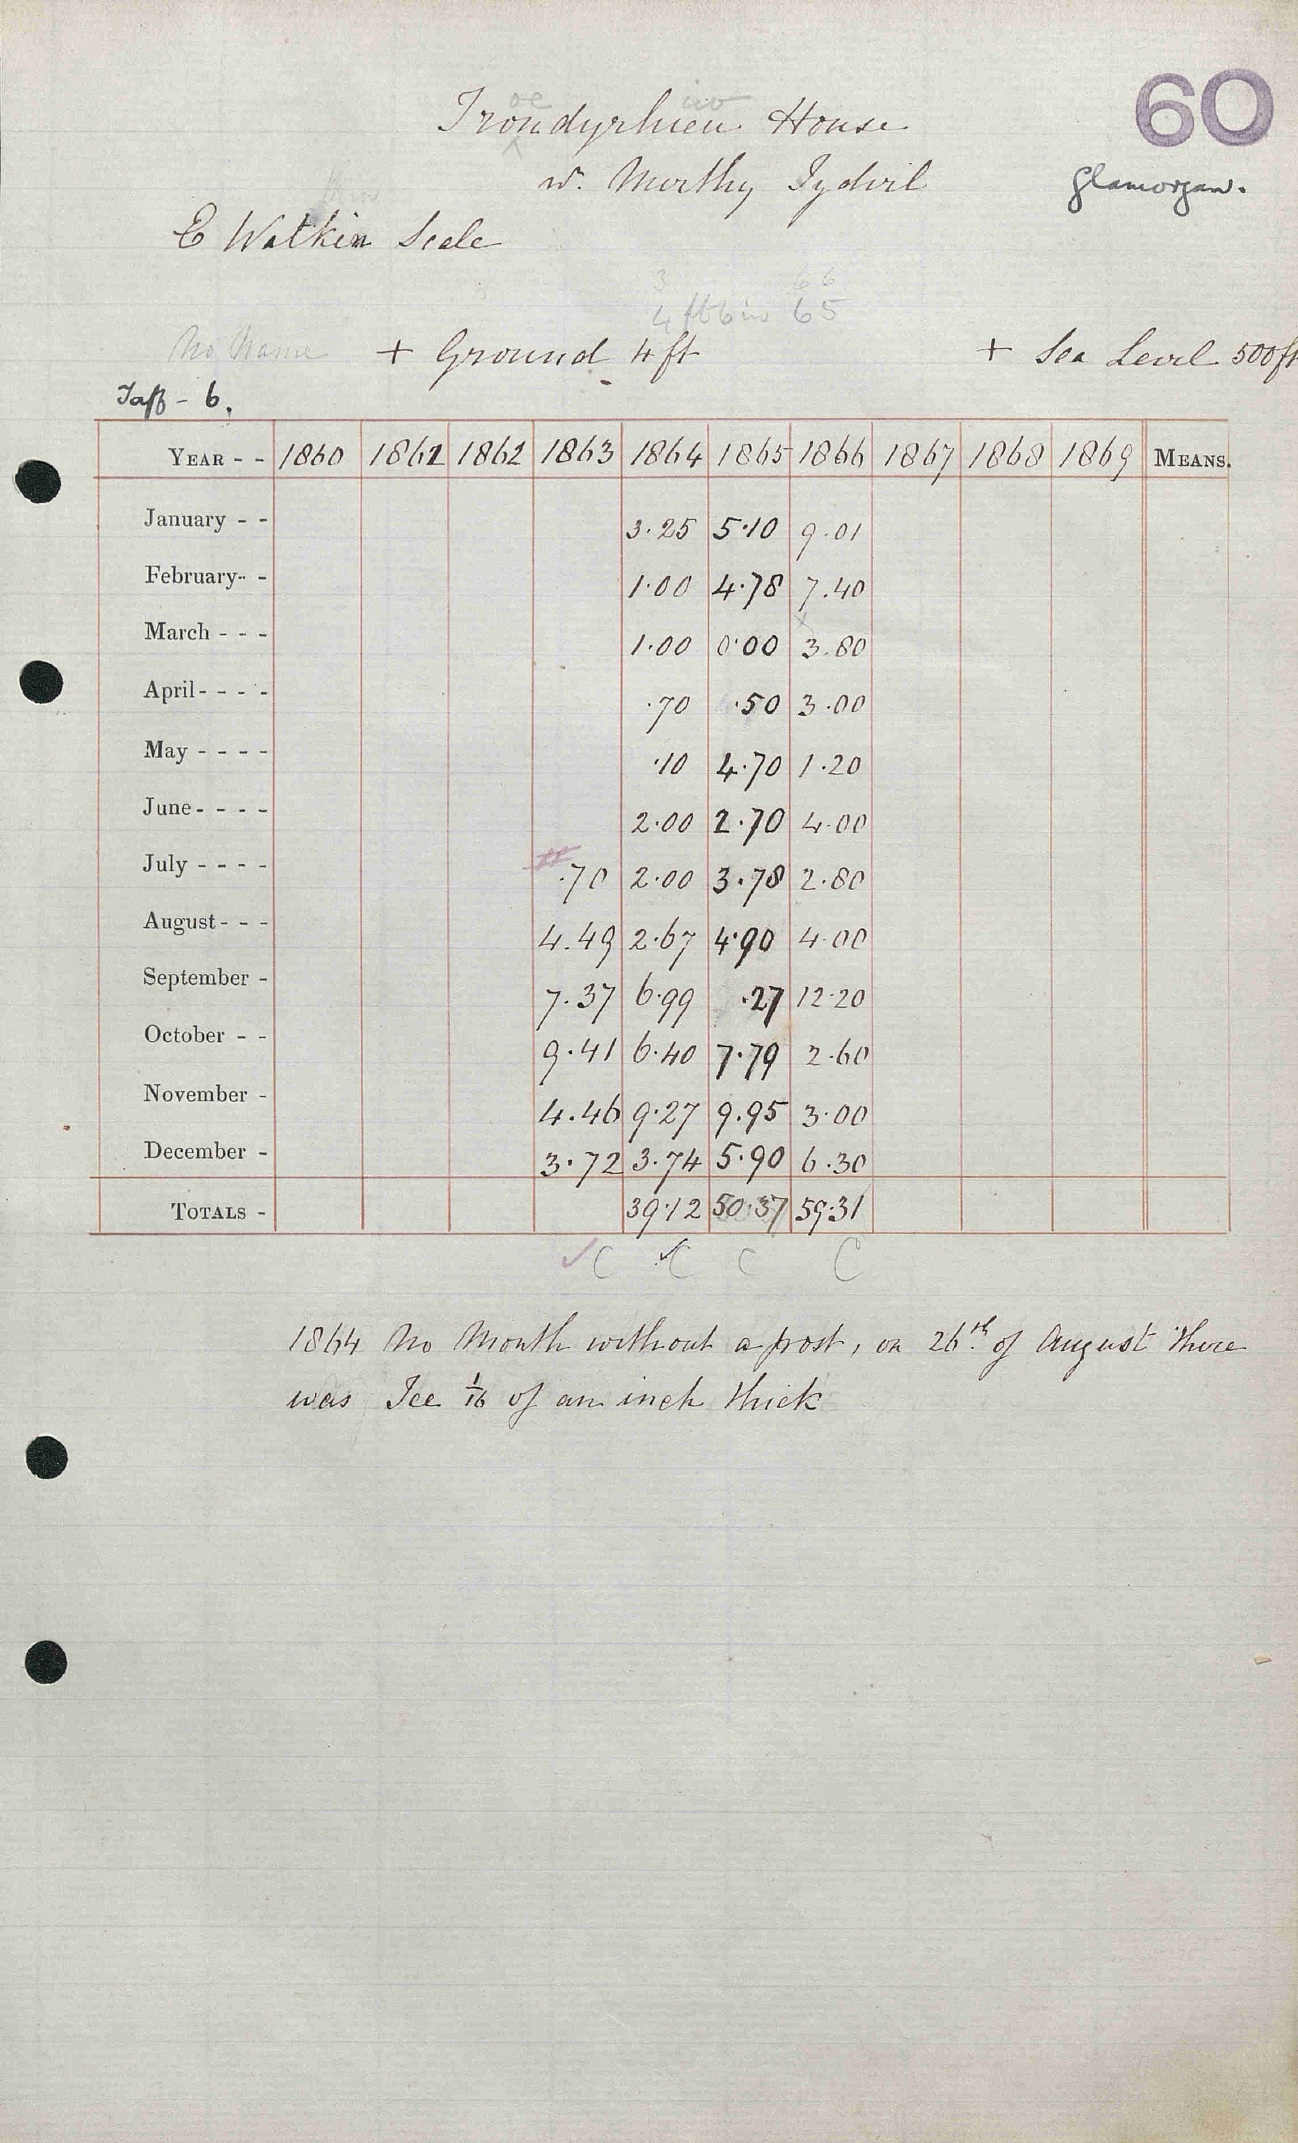 60
Trondyrhieu House
nr. Merthy Tydvil
Glamorgan.
E Watkin Scale
3 66
4 ft 6 in 65
No Name + Ground 4 ft + Sea Level 500 ft
Taff - 6.
YEAR - - 1860 1861 1862 1863 1864 1865 1866 1867 1868 1869 MEANS.
January - - 3.25 5.10 9.01
February - - 1.00 4.78 7.40
March - - - 1.00 0.00 3.80
April - - - - .70 .50 3.00
May - - - - .10 4.70 1.20
June - - - - 2.00 2.70 4.00
July - - - - .70 2.00 3.78 2.80
August - - - 4.49 2.67 4.90 4.00
September - 7.37 6.99 .27 12.20
October - - 9.41 6.40 7.79 2.60
November - 4.46 9.27 9.95 3.00
December - 3.72 3.74 5.90 6.30
TOTALS - 39.12 50.37 59.31
✓C ✓C C C
1864 No Month without a frost, on 26th of August there
was Ice 1/16 of an inch thick